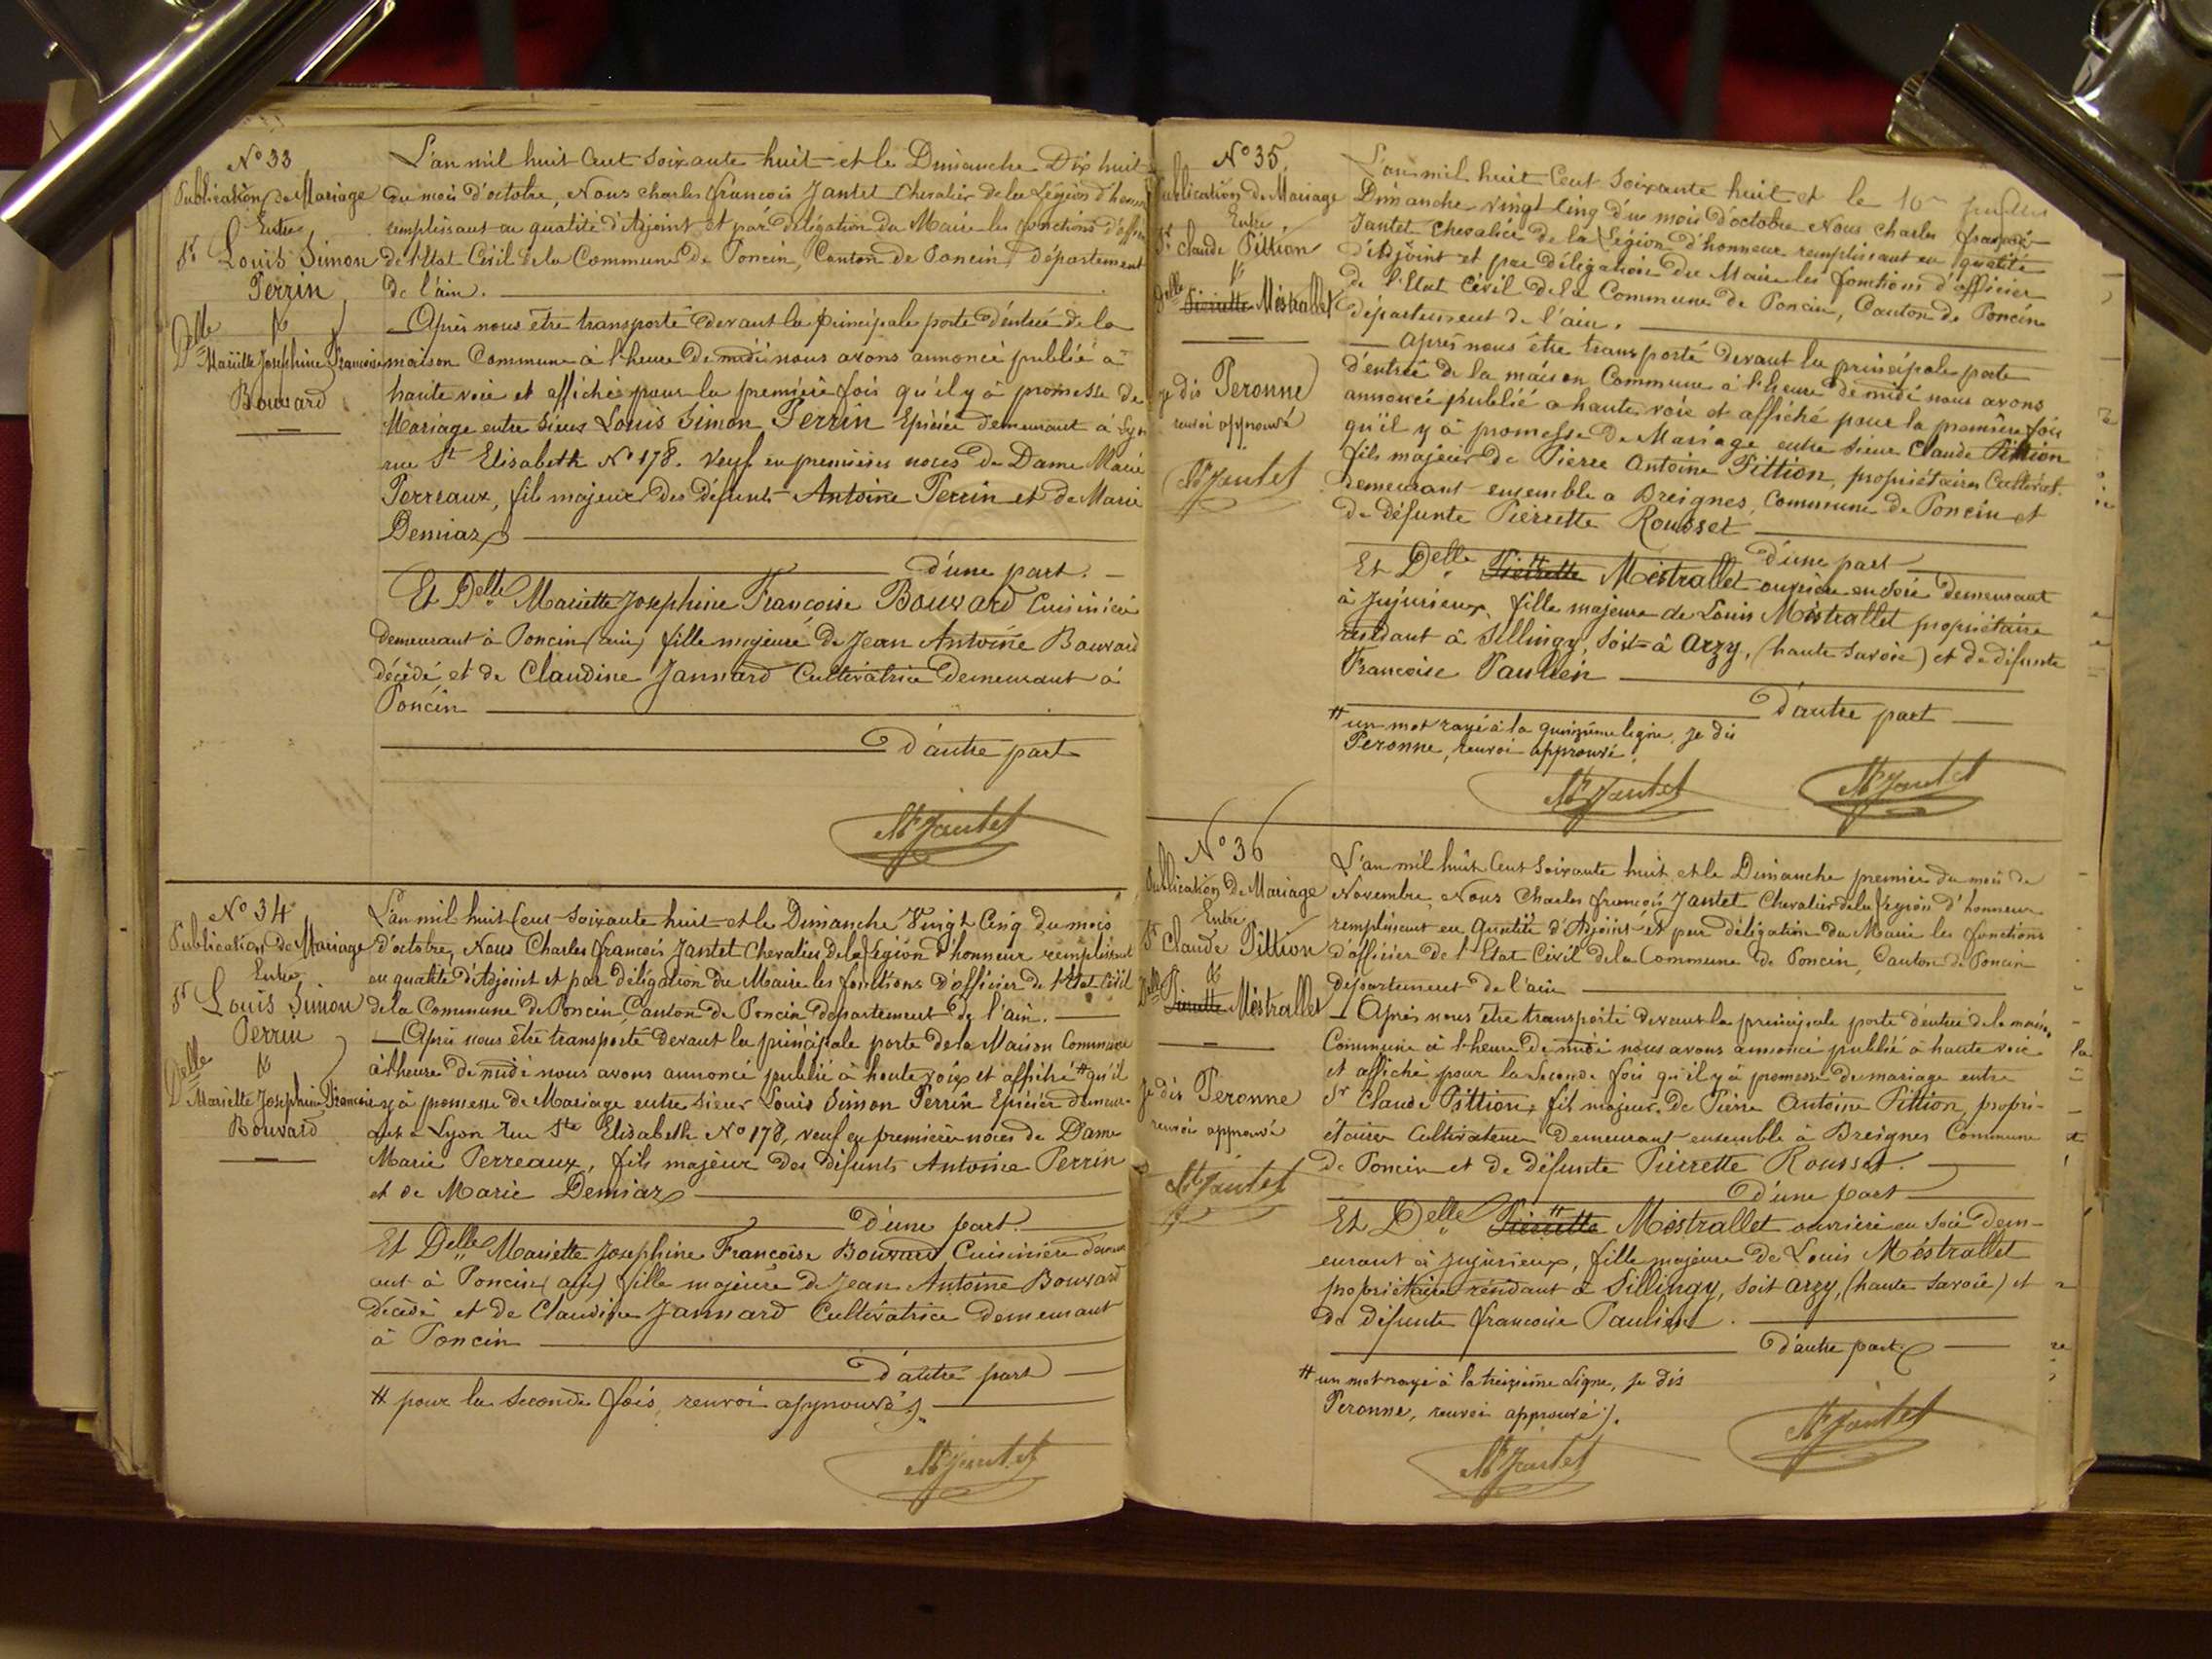 N° 33
Publication de Mariage
Entre
Sr Louis Simon
Perrin
&
Delle
Mariette Josephine Francoise
Bouvard
L'an mil huit Cent soixante huit et le Dimanche Dix huit
du mois d'octobre, Nous Charles françois Jantet Chevalier de la Légion d'honneur
remplissant en qualité d'Adjoint et par délégation du Maire les fonctions d'officier
de l'Etat Civil de la Commune de Poncin, Canton de Poncin, département
de l'ain.
Après nous être transporté devant la principale porte d'entrée de la
maison Commune à l'heure de midi nous avons annoncé publié à
haute voie et affiché pour la première fois qu'il y à promesse de
Mariage entre sieur Louis Simon Perrin Epicier demeurant à Lyon
rue St Elisabeth N° 178. Veuf en premières noces de Dame Marie
Perreaux, fils majeur des défunts Antoine Perrin et de Marie
Demiaz
d'une part.
Et Delle Mariette Josephine Francoise Bouvard Cuisinière
demeurant à Poncin (ain) fille majeure de Jean Antoine Bouvard
décédé et de Claudine Jannard Cultivatrice demeurant à
Poncin
d'autre part
Jantet
N° 34
Publication de Mariage
Entre
Sr Louis Simon
Perrin
&
Delle
Mariette Josephine Francoise
Bouvard
L'an mil huit Cent soixante huit et le Dimanche Vingt Cinq du mois
d'octobre, Nous Charles françois Jantet Chevalier de la Légion d'honneur remplissant
en qualité d'Adjoint et par délégation du Maire les fonctions d'officier de l'Etat Civil
de la Commune de Poncin, Canton de Poncin département de l'ain.
Après nous être transporté devant la principale porte de la Maison Commune
à l'heure de midi nous avons annoncé publié à haute voix et affiché # qu'il
y à promesse de Mariage entre sieur Louis Simon Perrin Epicier demeur-
ant à Lyon rue Ste Elisabeth N° 178, veuf en première noces de Dame
Marie Perreaux, fils majeur des défunts Antoine Perrin
et de Marie Demiaz
d'une part.
Et Delle Mariette Josephine Françoise Bouvard Cuisinière demeur
ant à Poncin (ain) fille majeure de Jean Antoine Bouvard
décédé et de Claudine Jannard Cultivatrice demeurant
à Poncin
d'autre part
# pour la seconde fois, renvoi approuvé
Jantet
N° 35
Publication de Mariage
Entre
Sr Claude Pittion
&
Delle Pierrette Méstrallet
je dis Peronne
renvoi approuvé
Jantet
L'an mil huit Cent soixante huit et le
Dimanche vingt cinq du mois d'octobre Nous Charles françois
Jantet Chevalier de la Légion d'honneur remplissant en qualité
d'Adjoint et par délégation du Maire les fonctions d'officier
de l'Etat Civil de la Commune de Poncin, Canton de Poncin
département de l'ain.
Après nous être transporté devant la principale porte
d'entrée de la maison Commune à l'heure de midi nous avons
annoncé publié a haute voie et affiché pour la première fois
qu'il y à promesse de Mariage entre sieur Claude Pittion
fils majeur de Pierre Antoine Pittion, propriétaires Cultivat.
demeurant ensemble a Breignes, Commune de Poncin et
de défunte Pierrette Rousset
d'une part
Et Delle # Pierrette Méstrallet ouvrière en soie demeurant
à Jujurieux, fille majeure de Louis Méstrallet propriétaire
résidant à Sillingy, soit à Arzy, (haute Savoie) et de défunte
Francoise Paulien
d'autre part
# un mot rayé à la quinzième ligne, je dis
Peronne, renvoi approuvé.
Jantet
Jantet
N° 36
Publication de Mariage
Entre
Sr Claude Pittion
&
Delle Pierrette Méstrallet
Je dis Peronne
renvoi approuvé
Jantet
L'an mil huit Cent soixante huit et le Dimanche premier du mois de
Novembre, Nous Charles françois Jantet Chevalier de la Légion d'honneur
remplissant en Qualité d'Adjoint et par délégation du Maire les fonctions
d'officier de l'Etat Civil de la Commune de Poncin, Canton de Poncin
département de l'ain
Après nous être transporté devant la principale porte d'entrée de la maison
Commune à l'heure de midi nous avons annoncé publié à haute voie
et affiché pour la seconde fois qu'il y à promesse de mariage entre
Sr Claude Pittion, fils majeur de Pierre Antoine Pittion, propri-
étaires Cultivateurs demeurant ensemble à Breignes Commune
de Poncin et de défunte Pierrette Rousset.
d'une part
Et Delle # Pierrette Méstrallet ouvrière en soie dem-
eurant à Jujurieux, fille majeure de Louis Méstrallet
propriétaire résidant à Sillingy, soit Arzy, (haute Savoie) et
de défunte francoise Paulien.
d'autre part.
# un mot rayé à la treizième ligne, je dis
Peronne, renvoi approuvé.
Jantet
Jantet